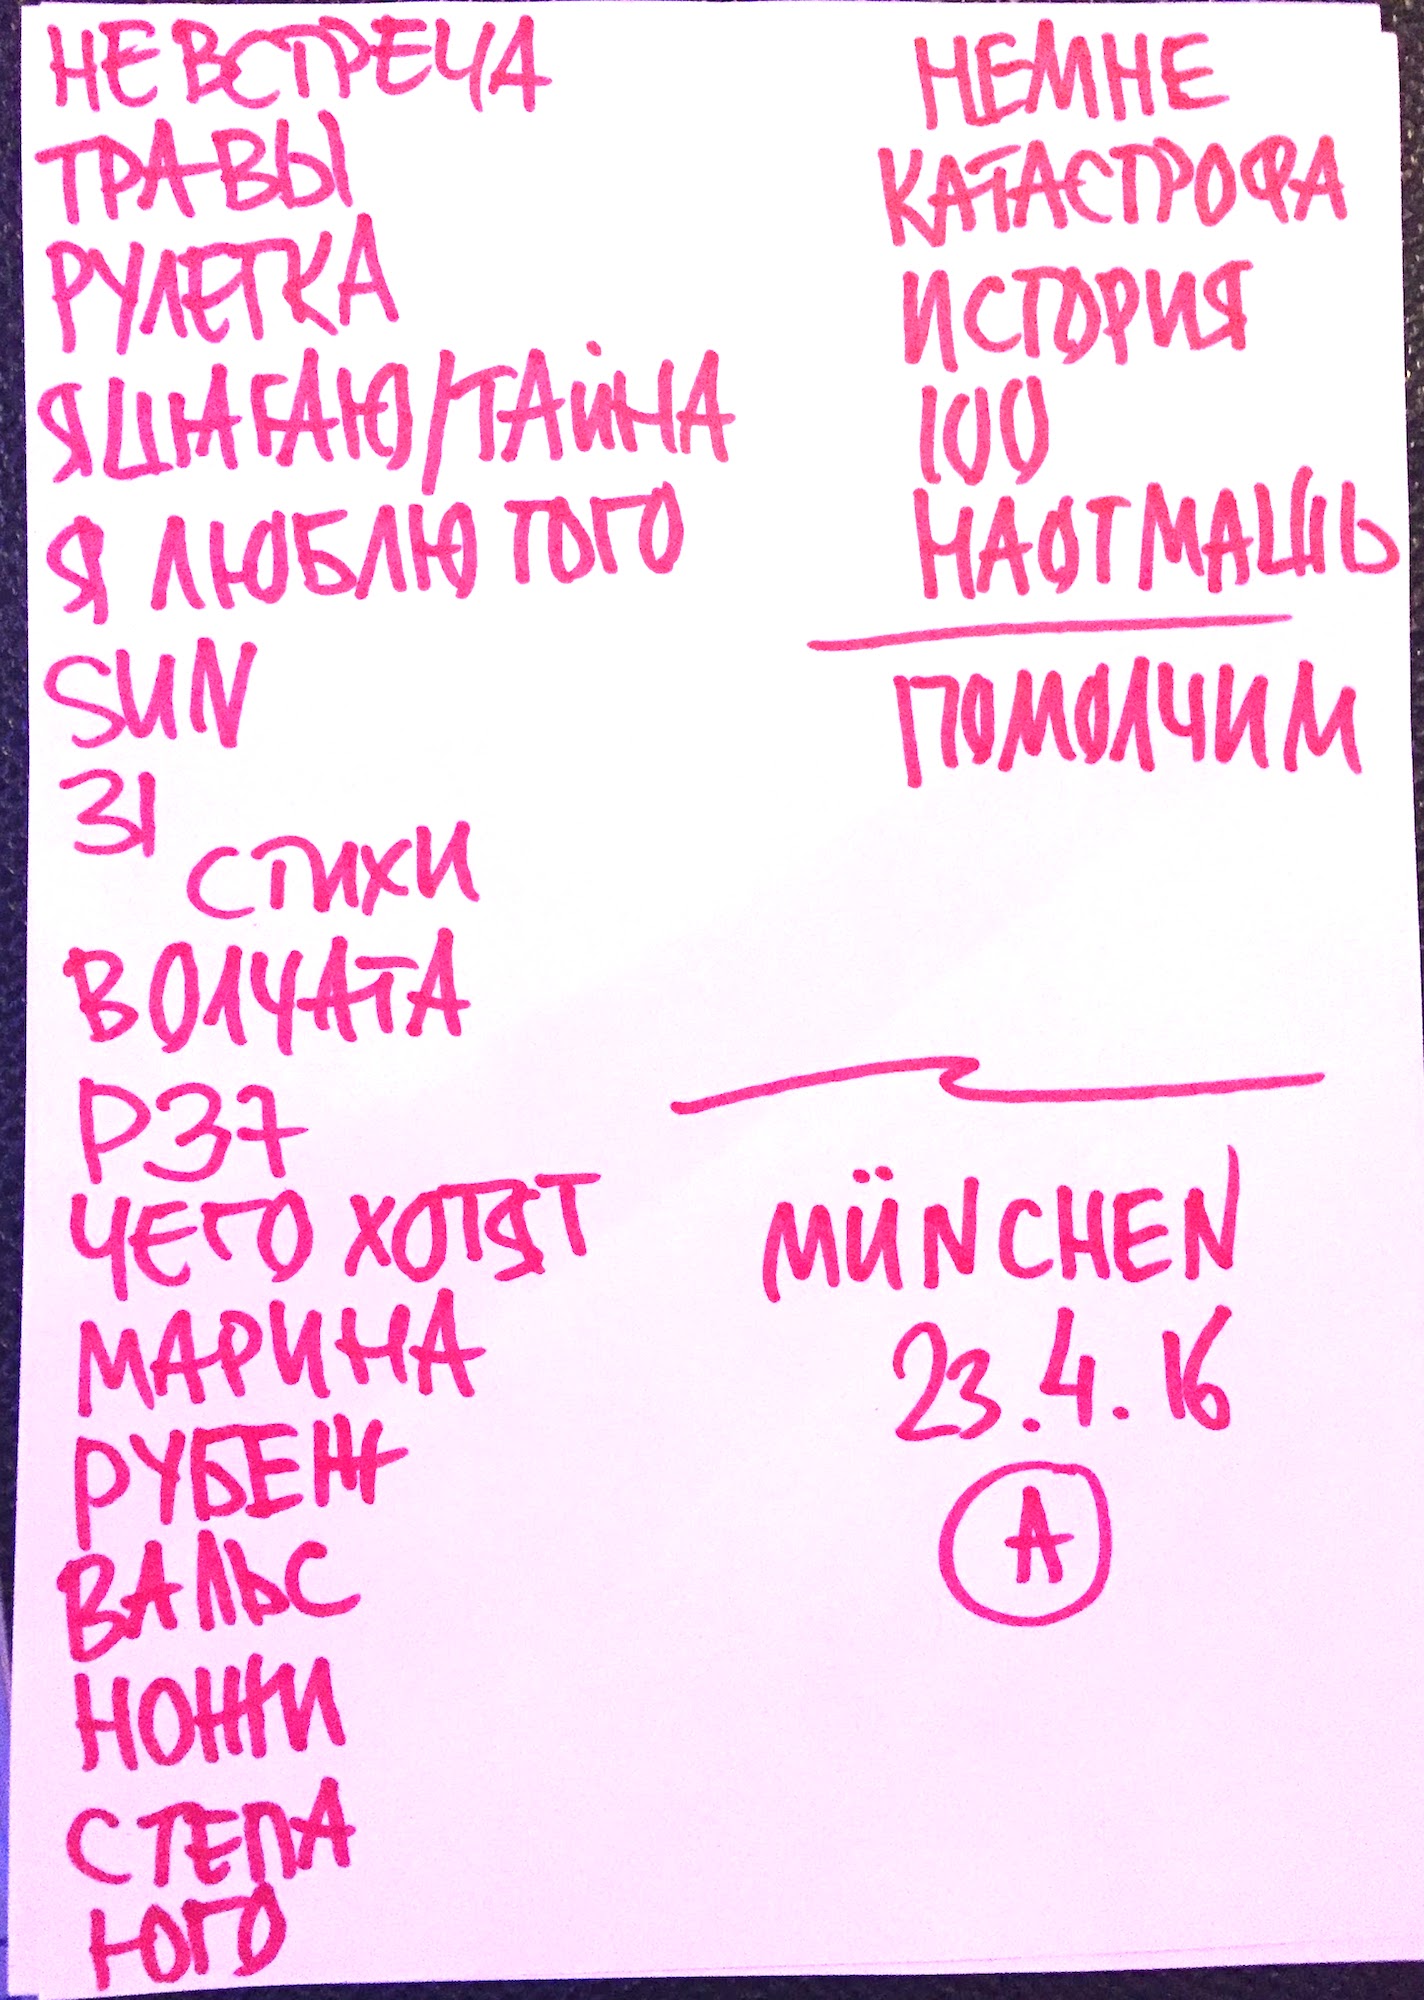 НЕВСТРЕЧА
ТРАВЫ
РУЛЕТКА
Я ШАГАЮ/ТАЙНА
Я ЛЮБЛЮ ТОГО
SUN
31
СТИХИ
ВОЛЧАТА
Р37
ЧЕГО ХОТЯТ
МАРИНА
РУБЕЖ
ВАЛЬС
НОЖИ
СТЕПА
ЮГО
НЕМНЕ
КАТАСТРОФА
ИСТОРИЯ
100
НАОТМАШЬ
ПОМОЛЧИМ
MÜNCHEN
23.4.16
A